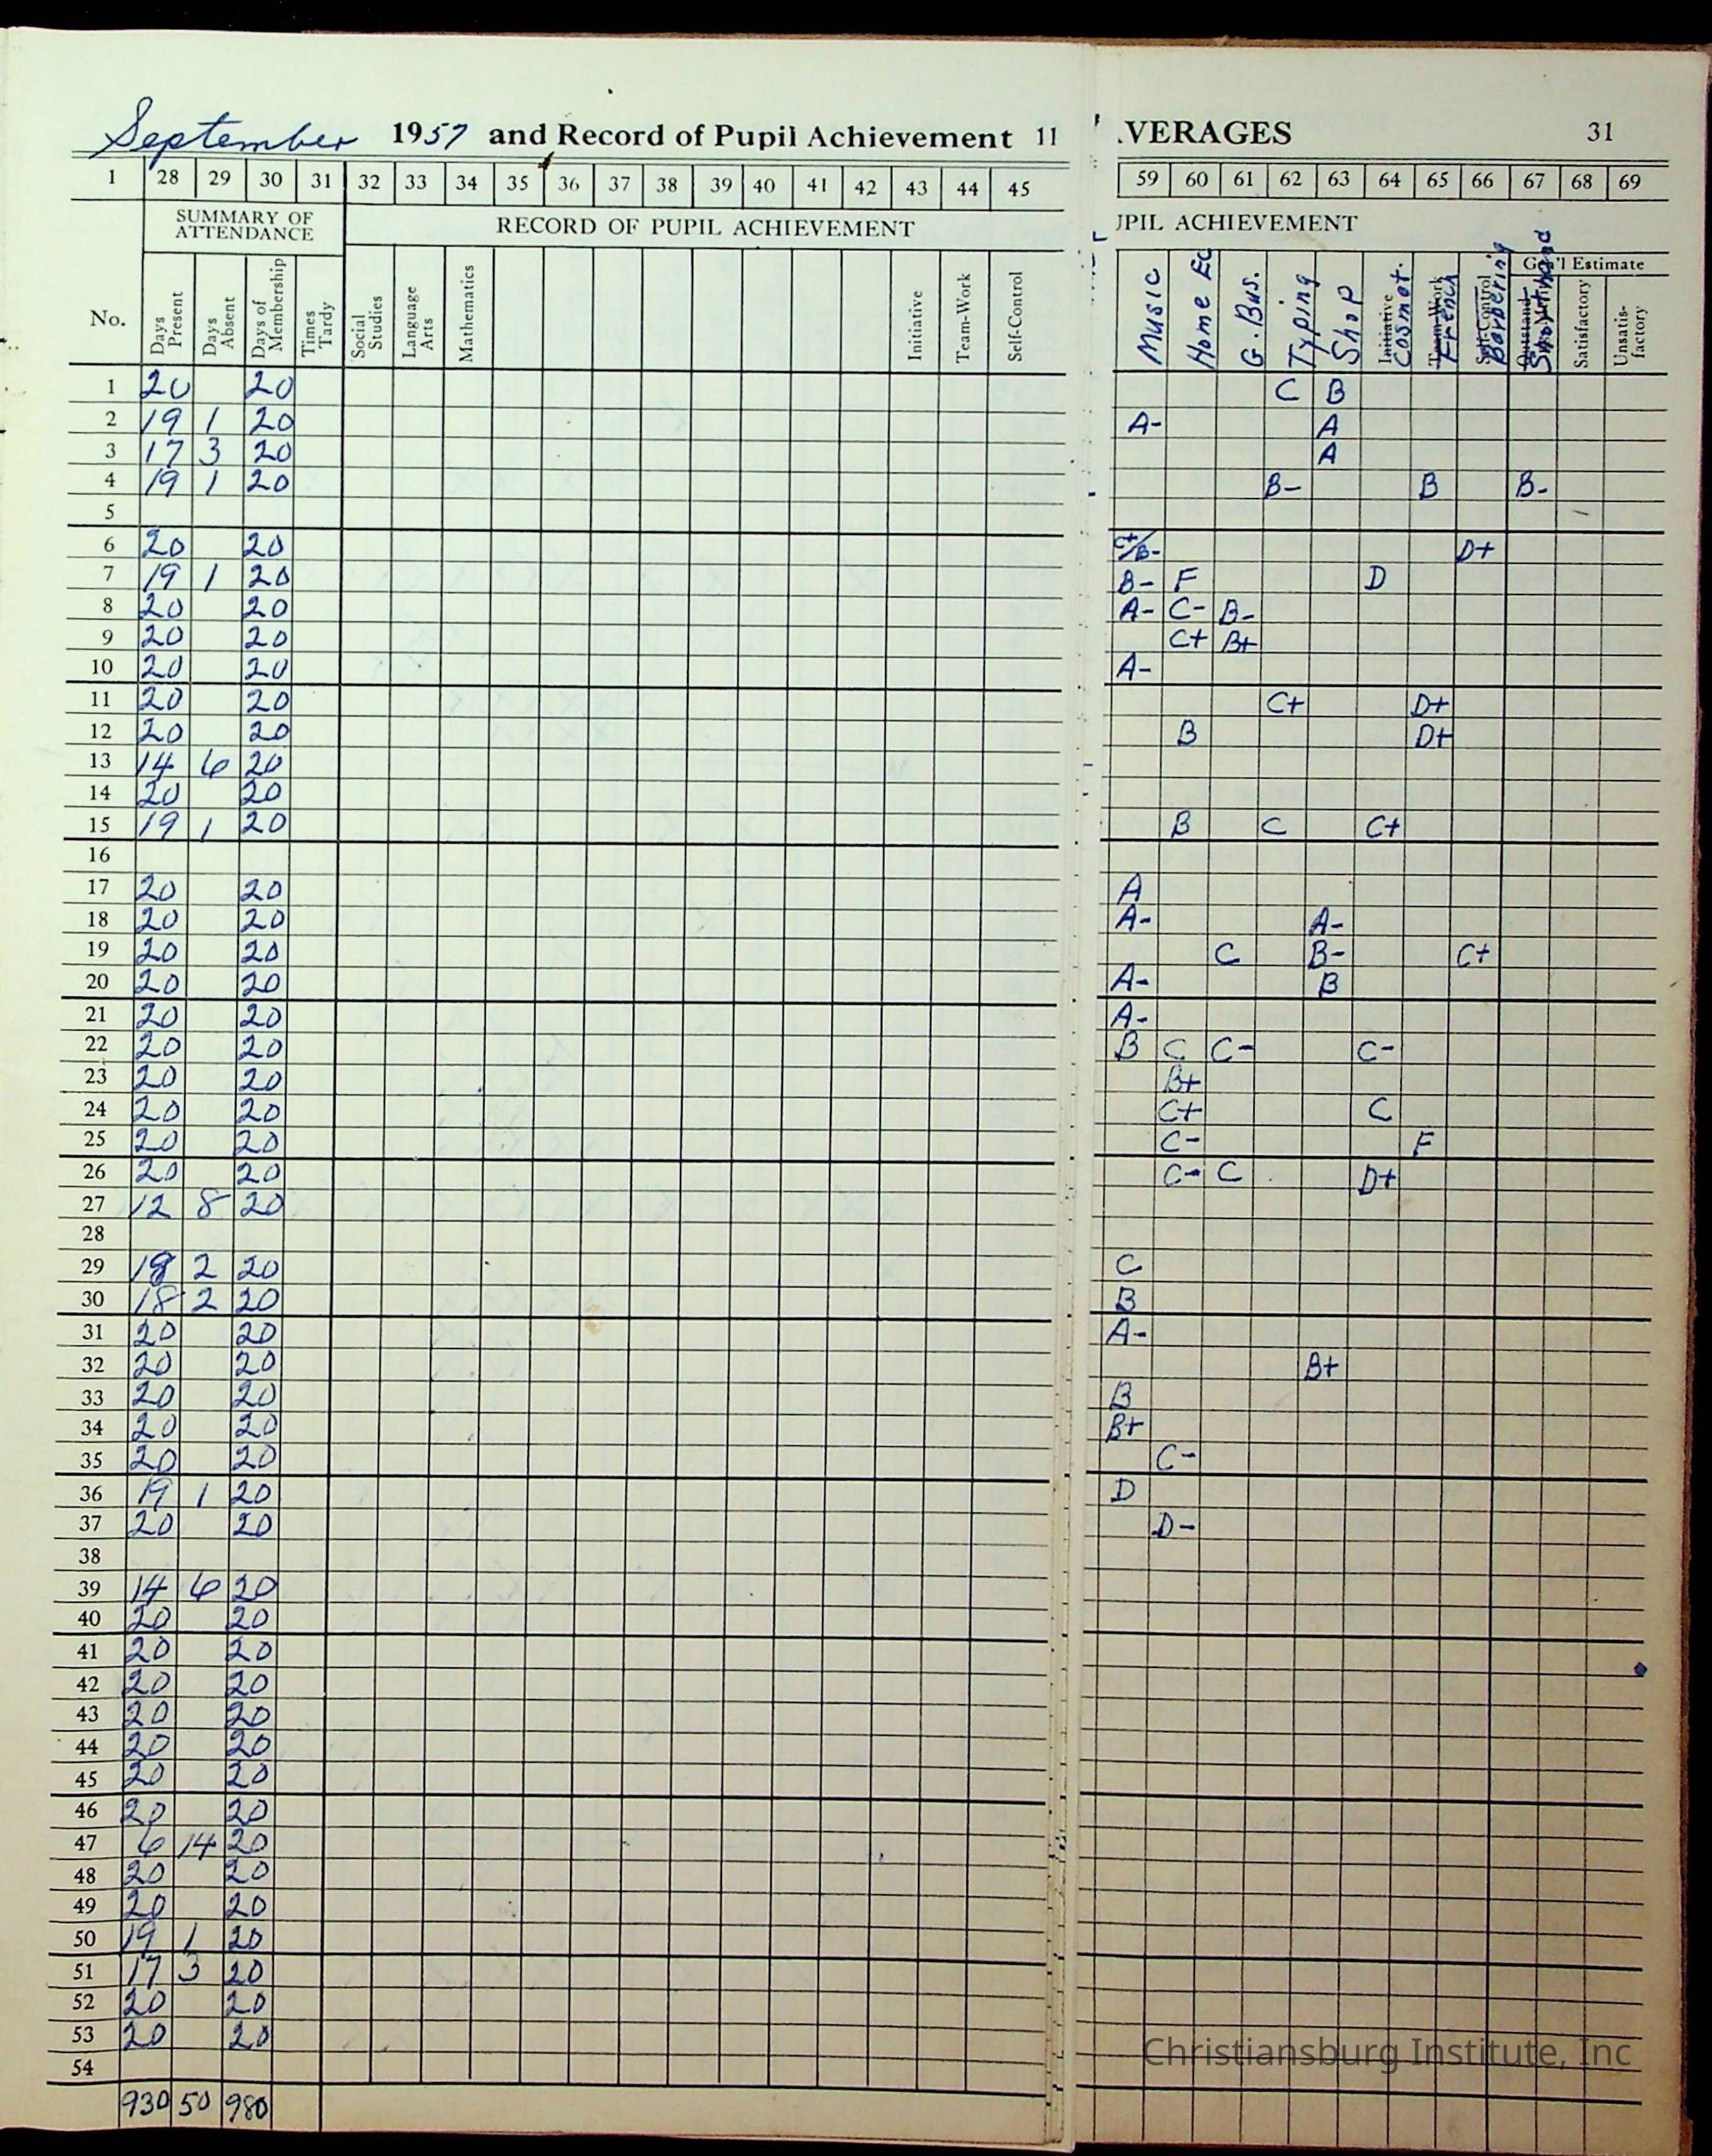 September 1957 and Record of Pupil Achievement 11
VERAGES 31
1 28 29 30 31 32 33 34 35 36 37 38 39 40 41 42 43 44 45
59 60 61 62 63 64 65 66 67 68 69
SUMMARY OF ATTENDANCE RECORD OF PUPIL ACHIEVEMENT
UPIL ACHIEVEMENT
Gen'l Estimate
No. Days Present Days Absent Days of Membership Times Tardy Social Studies Language Arts Mathematics Initiative Team-Work Self-Control
Music Home Ec G. Bus. Typing Shop Initiative Cosmet. Team-Work French Self-Control Barbering Shorthand Satisfactory Unsatis-factory
1 20 20 C B
2 19 1 20 A- A
3 17 3 20 A
4 19 1 20 B- B B-
5
6 20 20 C+/B- D+
7 19 1 20 B- F D
8 20 20 A- C- B-
9 20 20 C+ B+
10 20 20 A-
11 20 20 C+ D+
12 20 20 B D+
13 14 6 20
14 20 20
15 19 1 20 B C C+
16
17 20 20 A
18 20 20 A- A-
19 20 20 C B- C+
20 20 20 A- B
21 20 20 A-
22 20 20 B C C- C-
23 20 20 B+
24 20 20 C+ C
25 20 20 C- F
26 20 20 C- C D+
27 12 8 20
28
29 18 2 20 C
30 18 2 20 B
31 20 20 A-
32 20 20 B+
33 20 20 B
34 20 20 B+
35 20 20 C-
36 19 1 20 D
37 20 20 D-
38
39 14 6 20
40 20 20
41 20 20
42 20 20
43 20 20
44 20 20
45 20 20
46 20 20
47 6 14 20
48 20 20
49 20 20
50 19 1 20
51 17 3 20
52 20 20
53 20 20
54
930 50 980
Christiansburg Institute, Inc